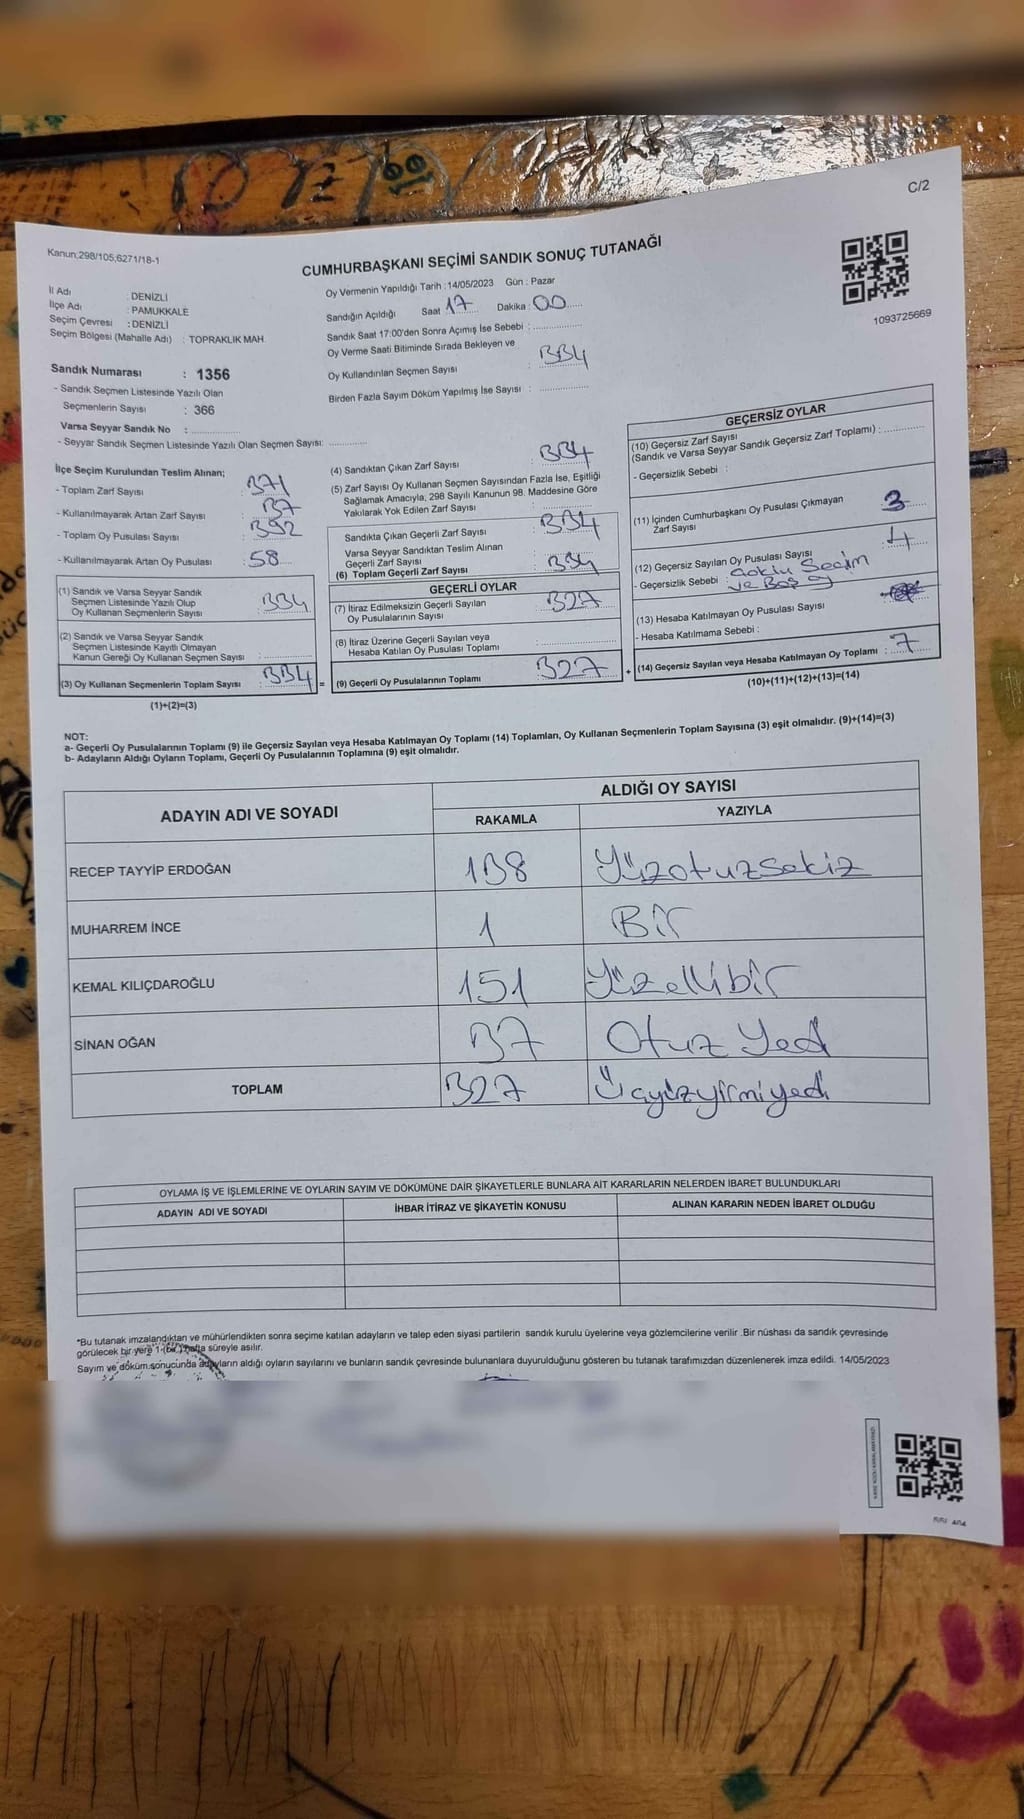 C/2
Kanun;298/105;6271/18-1
CUMHURBAŞKANI SEÇİMİ SANDIK SONUÇ TUTANAĞI
1093725669
İl Adı : DENİZLİ
İlçe Adı : PAMUKKALE
Seçim Çevresi : DENİZLİ
Seçim Bölgesi (Mahalle Adı) : TOPRAKLIK MAH.
Sandık Numarası : 1356
- Sandık Seçmen Listesinde Yazılı Olan
Seçmenlerin Sayısı : 366
Varsa Seyyar Sandık No :
- Seyyar Sandık Seçmen Listesinde Yazılı Olan Seçmen Sayısı:
Oy Vermenin Yapıldığı Tarih : 14/05/2023 Gün : Pazar
Sandığın Açıldığı Saat 17 Dakika : 00
Sandık Saat 17:00'den Sonra Açımış İse Sebebi :
Oy Verme Saati Bitiminde Sırada Bekleyen ve
Oy Kullandırılan Seçmen Sayısı : 334
Birden Fazla Sayım Döküm Yapılmış İse Sayısı :
İlçe Seçim Kurulundan Teslim Alınan;
- Toplam Zarf Sayısı : 371
- Kullanılmayarak Artan Zarf Sayısı : 37
- Toplam Oy Pusulası Sayısı : 392
- Kullanılmayarak Artan Oy Pusulası : 58
(1) Sandık ve Varsa Seyyar Sandık
Seçmen Listesinde Yazılı Olup
Oy Kullanan Seçmenlerin Sayısı : 334
(2) Sandık ve Varsa Seyyar Sandık
Seçmen Listesinde Kayıtlı Olmayan
Kanun Gereği Oy Kullanan Seçmen Sayısı :
(3) Oy Kullanan Seçmenlerin Toplam Sayısı : 334 =
(1)+(2)=(3)
(4) Sandıktan Çıkan Zarf Sayısı : 334
(5) Zarf Sayısı Oy Kullanan Seçmen Sayısından Fazla İse, Eşitliği
Sağlamak Amacıyla, 298 Sayılı Kanunun 98. Maddesine Göre
Yakılarak Yok Edilen Zarf Sayısı :
Sandıkta Çıkan Geçerli Zarf Sayısı : 334
Varsa Seyyar Sandıktan Teslim Alınan
Geçerli Zarf Sayısı :
(6) Toplam Geçerli Zarf Sayısı : 334
GEÇERLİ OYLAR
(7) İtiraz Edilmeksizin Geçerli Sayılan
Oy Pusulalarının Sayısı : 327
(8) İtiraz Üzerine Geçerli Sayılan veya
Hesaba Katılan Oy Pusulası Toplamı :
(9) Geçerli Oy Pusulalarının Toplamı : 327 +
GEÇERSİZ OYLAR
(10) Geçersiz Zarf Sayısı
(Sandık ve Varsa Seyyar Sandık Geçersiz Zarf Toplamı) :
- Geçersizlik Sebebi :
(11) İçinden Cumhurbaşkanı Oy Pusulası Çıkmayan
Zarf Sayısı : 3
(12) Geçersiz Sayılan Oy Pusulası Sayısı : 4
- Geçersizlik Sebebi : Çoklu Seçim
ve Boş oy
(13) Hesaba Katılmayan Oy Pusulası Sayısı :
- Hesaba Katılmama Sebebi :
(14) Geçersiz Sayılan veya Hesaba Katılmayan Oy Toplamı : 7
(10)+(11)+(12)+(13)=(14)
NOT:
a- Geçerli Oy Pusulalarının Toplamı (9) ile Geçersiz Sayılan veya Hesaba Katılmayan Oy Toplamı (14) Toplamları, Oy Kullanan Seçmenlerin Toplam Sayısına (3) eşit olmalıdır. (9)+(14)=(3)
b- Adayların Aldığı Oyların Toplamı, Geçerli Oy Pusulalarının Toplamına (9) eşit olmalıdır.
ADAYIN ADI VE SOYADI
ALDIĞI OY SAYISI
RAKAMLA YAZIYLA
RECEP TAYYİP ERDOĞAN 138 Yüzotuzsekiz
MUHARREM İNCE 1 Bir
KEMAL KILIÇDAROĞLU 151 Yüzellibir
SİNAN OĞAN 37 Otuz Yedi
TOPLAM 327 Üçyüzyirmiyedi
OYLAMA İŞ VE İŞLEMLERİNE VE OYLARIN SAYIM VE DÖKÜMÜNE DAİR ŞİKAYETLERLE BUNLARA AİT KARARLARIN NELERDEN İBARET BULUNDUKLARI
ADAYIN ADI VE SOYADI İHBAR İTİRAZ VE ŞİKAYETİN KONUSU ALINAN KARARIN NEDEN İBARET OLDUĞU
*Bu tutanak imzalandıktan ve mühürlendikten sonra seçime katılan adayların ve talep eden siyasi partilerin sandık kurulu üyelerine veya gözlemcilerine verilir .Bir nüshası da sandık çevresinde
görülecek bir yere 1 (bir ) hafta süreyle asılır.
Sayım ve döküm sonucunda adayların aldığı oyların sayılarını ve bunların sandık çevresinde bulunanlara duyurulduğunu gösteren bu tutanak tarafımızdan düzenlenerek imza edildi. 14/05/2023